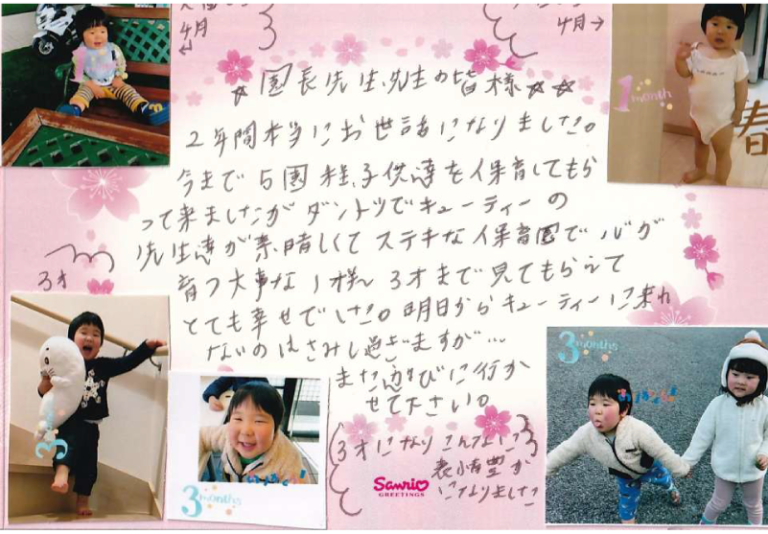 4月
4月→
☆園長先生、先生の皆様☆☆
2年間本当にお世話になりました。
今まで5園程、子供達を保育してもら
って来ましたがダントツでキューティーの
先生達が素晴しくてステキな保育園で心が
育つ大事な1才~3才まで見てもらえて
とても幸せでした。明日からキューティーに来れ
ないのはさみし過ぎますが…
また遊びに行か
せて下さい。
3才
(3才になりこんなに
表情豊か
になりました
Sanrio
GREETINGS
1 month
春
3 months
3 months
3 months